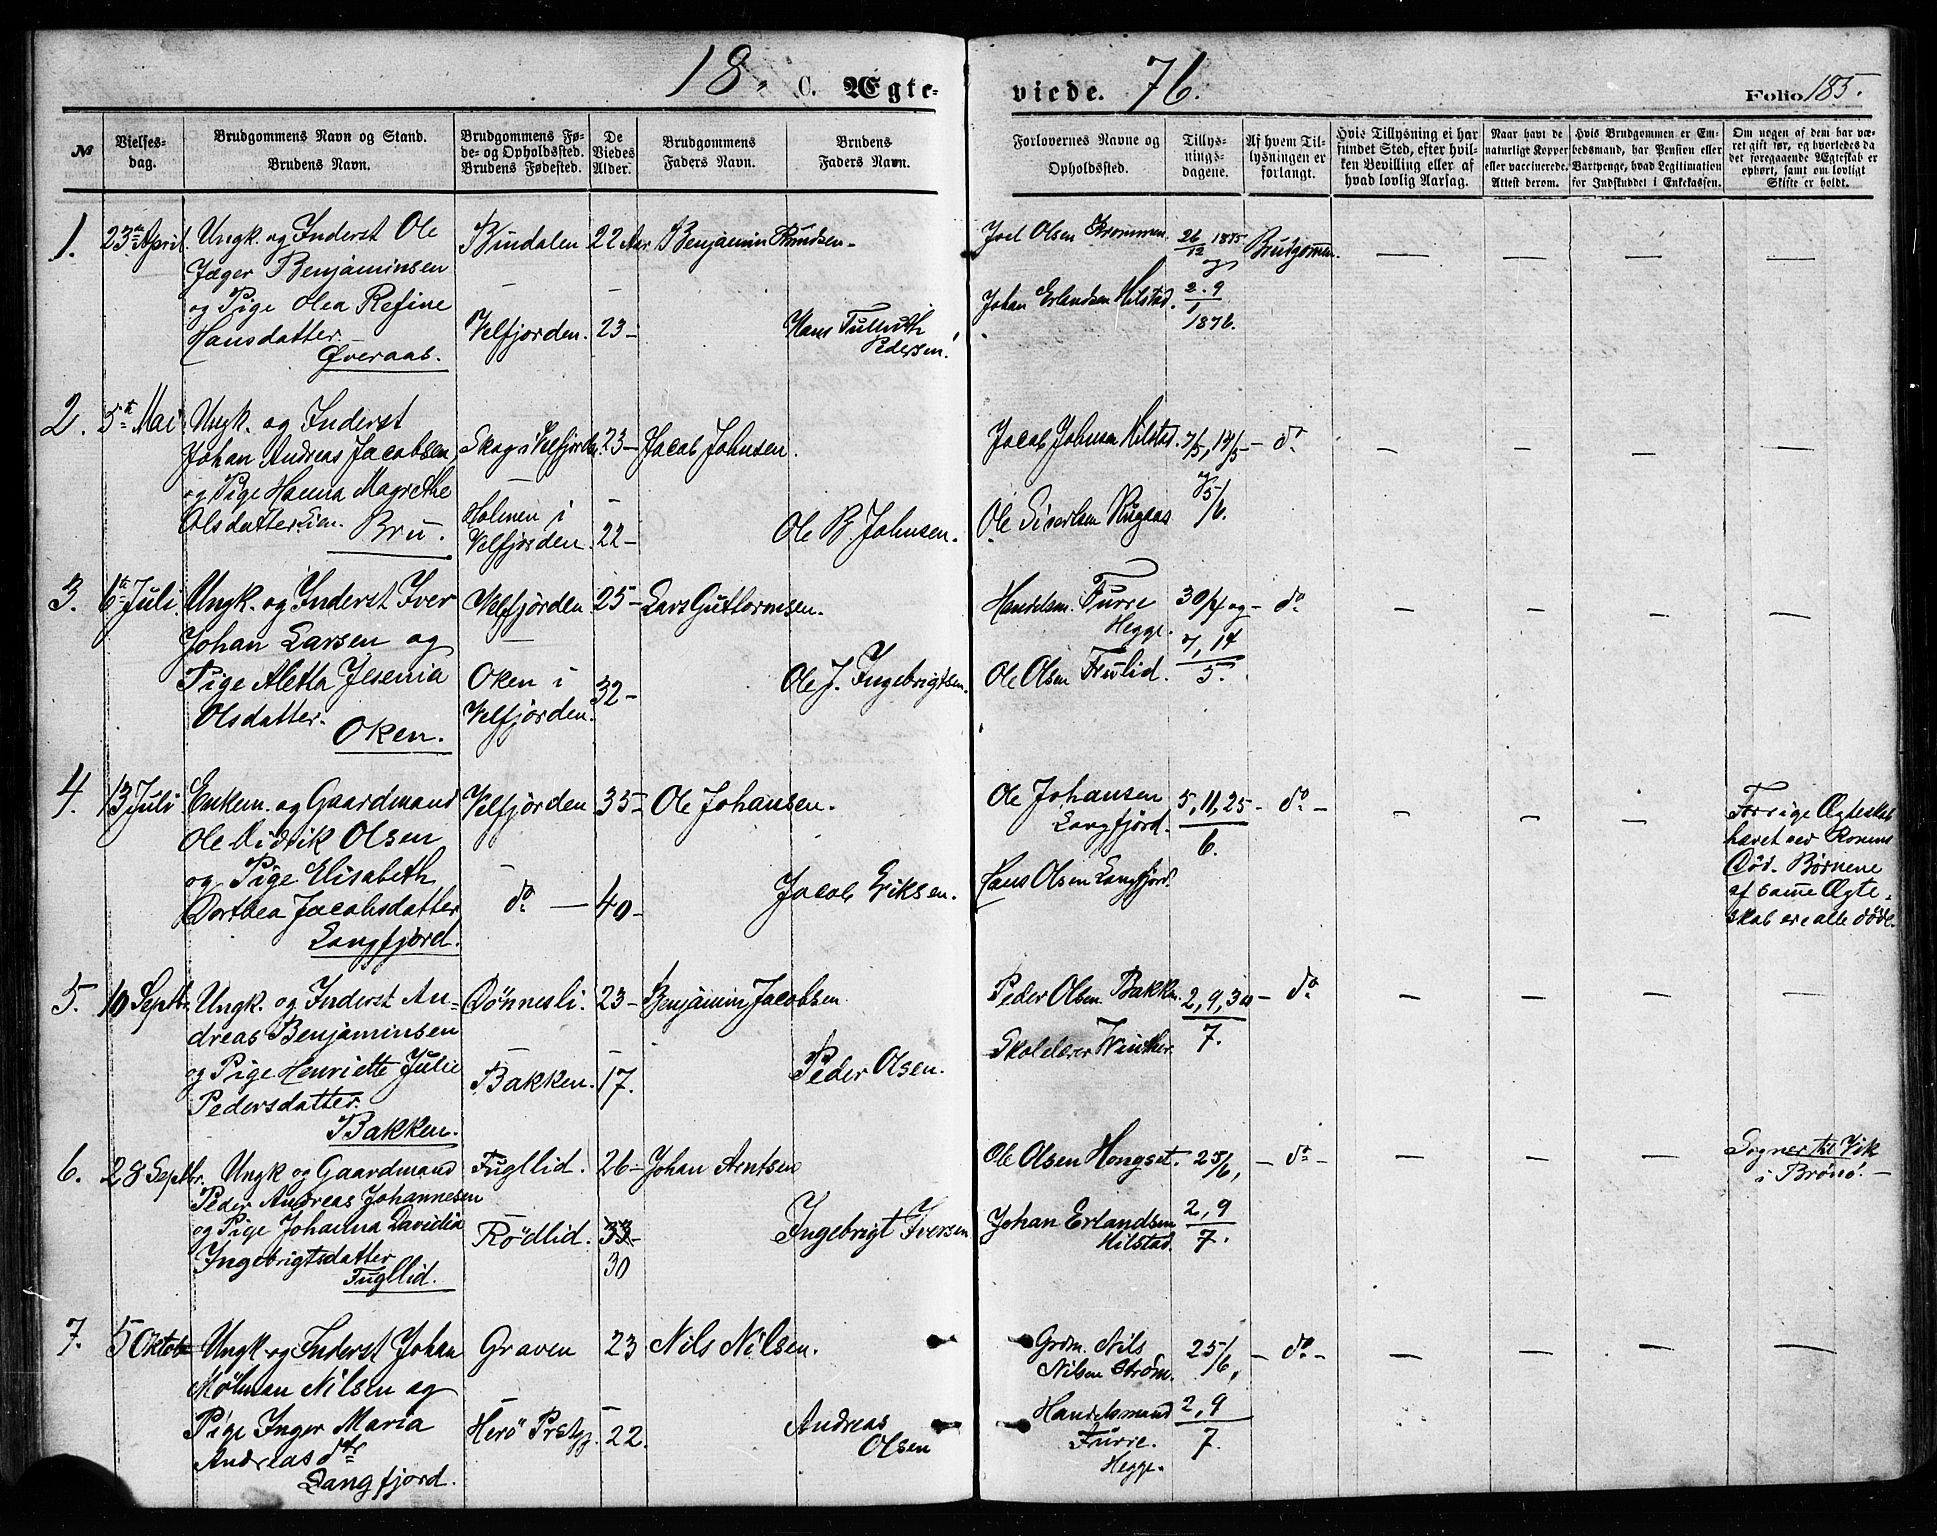 18. C. Ægte-
viede. 76.
Folio 185.
№
Vielses-
dag.
Brudgommens Navn og Stand.
Brudens Navn.
Brudgommens Fø-
de- og Opholdssted.
Brudens Fødested.
De
Viedes
Alder.
Brudgommens
Faders Navn.
Brudens
Faders Navn.
Forlovernes Navne og
Opholdssted.
Tillys-
nings-
dagene.
Af hvem Til-
lysningen er
forlangt.
Hvis Tillysning ei har
fundet Sted, efter hvil-
ken Bevilling eller af
hvad lovlig Aarsag.
Naar havt de
naturligt Kopper
eller vaccinerede.
Attest derom.
Hvis Brudgommen er Em-
bedsmand, har Pension eller
Vartpenge, hvad Legitimation
for Indskuddet i Enkekassen.
Om nogen af dem har væ-
ret gift før, og hvorledes da
det foregaaende Ægteskab er
ophørt, samt om lovligt
Skifte er holdt.
1. 23de April. Ungk. og Inderst Ole
Jæger Benjaminsen
og Pige Olea Refine
Hansdatter.
Øveraas.
Bindalen 22 Aar Benjamin Knudsen -
Velfjorden. 23 -
Hans Tulluth
Pedersen.
Joel Olsen Strømmen.
Johan Erlandsen Hilstad.
26/12 1875
og
2.9/1
1876.
Brudgommen.
2. 5te Mai Ungk. og Inderst
Johan Andreas Jacobsen
og Pige Hanna Magrethe
Olsdatter
Bru.
Skog i Velfjorden. 23 - Jacob Johnsen.
Holmen i
Velfjorden. 22 -
Ole B. Johnsen.
Jacob Johnsen Hilstad. 7/5, 14/5 - do
Ole Sivertsen Rugaas
5/6.
3. 6te Juli. Ungk. og Inderst Iver
Johan Larsen og
Pige Aletta Jesenia
Olsdatter.
Oken.
Velfjorden 25 - Lars Guttormsen.
Oken i
Velfjorden. 32 -
Ole J. Ingebrigtsen.
Handelsm. Furre
Hegge.
Ole Olsen Frulid.
30/4 og - do
7, 14
5.
4. 13 Juli Enkem. og Gaardmand
Ole Didrik Olsen
og Pige Elisabeth
Dorthea Jacobsdatter
Langfjord.
Velfjorden 35 - Ole Johansen.
do - 40 -
Jacob Eriksen.
Ole Johansen
Langfjord.
Hans Olsen Langfjord.
5, 11, 25 - do -
6.
Forrige Ægteskab
hævet ved Konens
Død. Børnene
af samme Ægte-
skab ere alle døde.
5. 10 Septbr. Ungk. og Inderst An-
dreas Benjaminsen
og Pige Henriette Julie
Pedersdatter.
Bakken.
Dønnesli. 23 - Benjamin Jacobsen
Bakken. 17.
Peder Olsen.
Peder Olsen Bakken.
Skolelærer Winther.
2, 9, 30 - do
7.
6. 28 Septbr. Ungk og Gaardmand
Peder Andreas Johannesen
og Pige Johanna Davidia
Ingebrigtsdatter
Fugllid.
Fugllid. 26 - Johan Arntsen
Rødlid. 33 -
30
Ingebrigt Iversen
Ole Olsen Hongset. 25/6, - do -
Johan Erlandsen
Hilstad.
2, 9
7.
Sogner til Vik
i Brønø. -
7. 5 Oktobr Ungk og Inderst Johan
Mølman Nilsen og
Pige Inger Maria
Andreasdtr
Langfjord.
Graven 23 Nils Nilsen.
Herø Prstgj. 22.
Andreas
Olsen
Grdm. Nils
Nilsen Strøm.
25/6, - do -
Handelsmand
Furre.
Hegge.
2, 9
7.